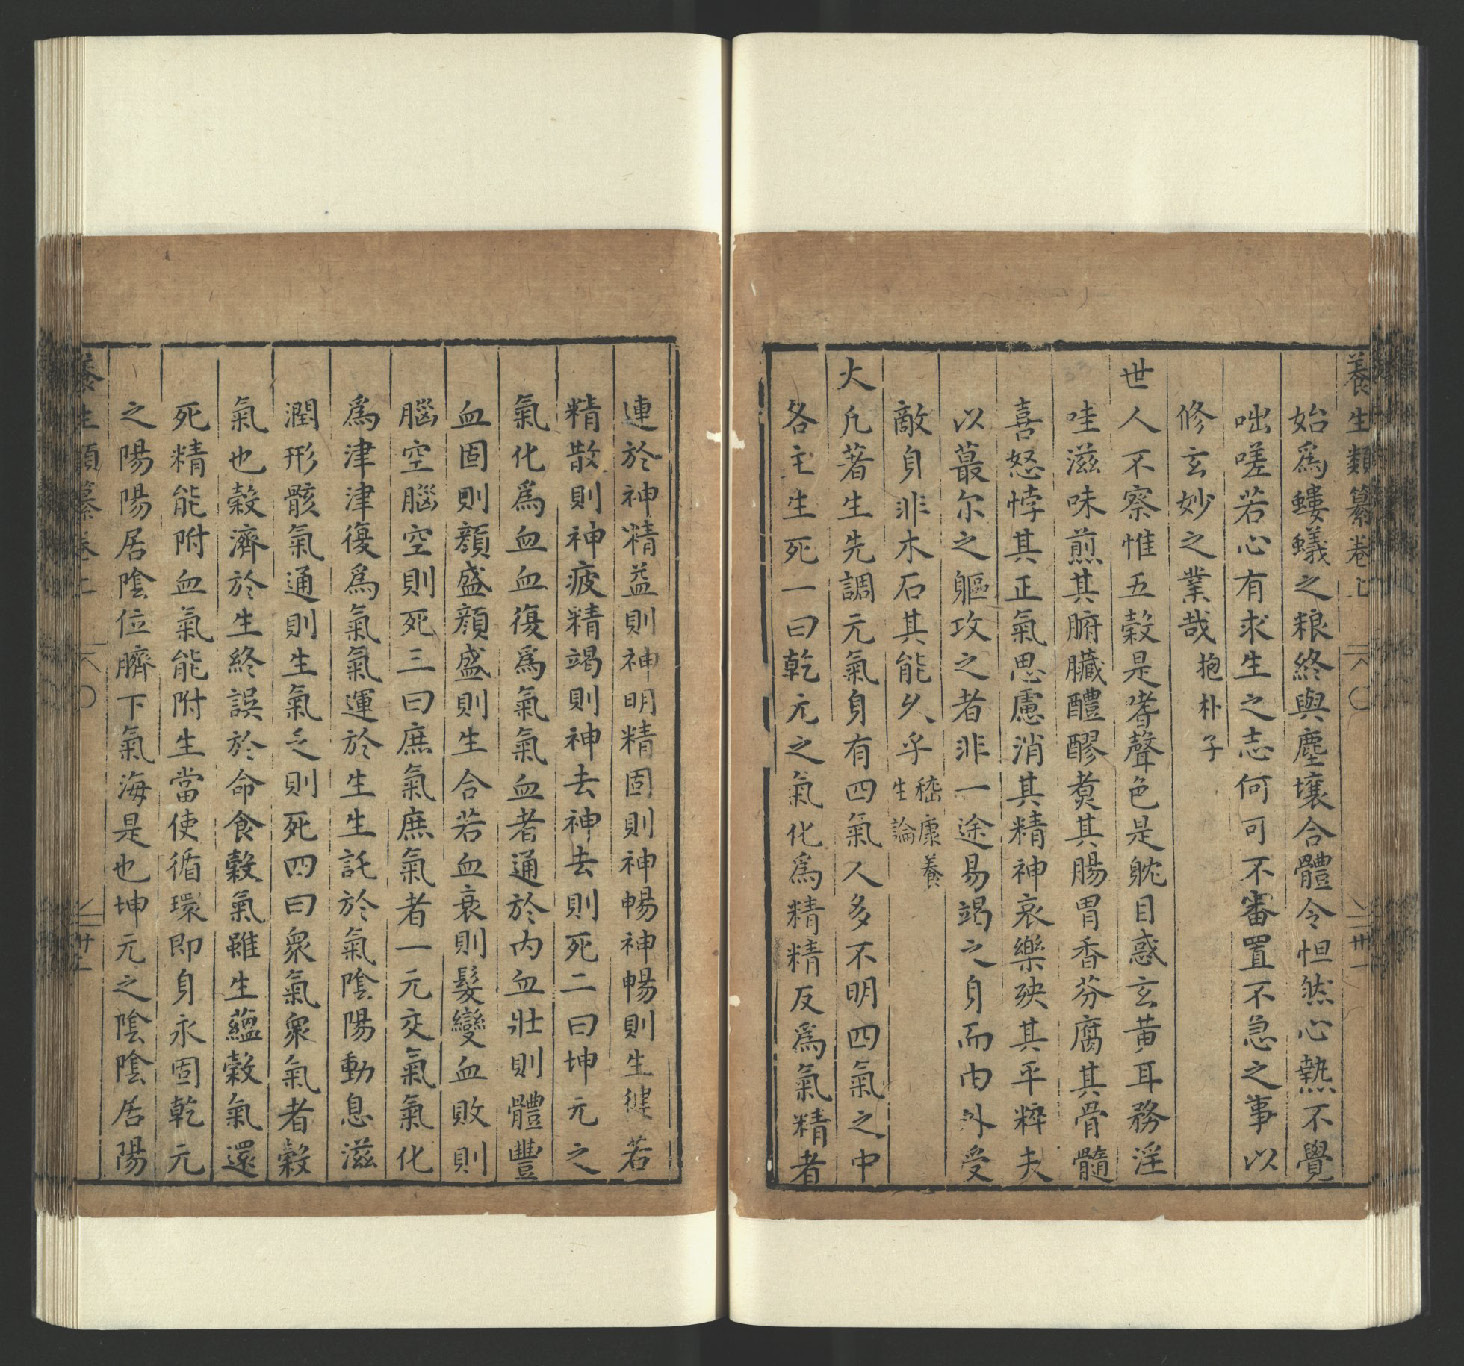 養生類纂卷上 卅一
始為螻蟻之粮終與塵壤合體令怛然心熱不覺
咄嗟若心有求生之志何可不審置不急之事以
修玄妙之業哉抱朴子
世人不察惟五穀是嗜聲色是躭目惑玄黄耳務淫
哇滋味煎其腑臟醴醪煑其腸胃香芬腐其骨髓
喜怒悖其正氣思慮消其精神哀樂殃其平粹夫
以蕞尔之軀攻之者非一途易竭之身而內外受
敵身非木石其能久乎嵇康養生論
大凡著生先調元氣身有四氣人多不明四氣之中
各主生死一曰乾元之氣化爲精精反爲氣精者
連於神精益則神明精固則神暢神暢則生健若
精散則神疲精竭則神去神去則死二曰坤元之
氣化爲血血復爲氣氣血者通於內血壯則體豐
血固則顏盛顏盛則生合若血衰則髮變血敗則
腦空腦空則死三曰庶氣庶氣者一元交氣氣化
爲津津復爲氣氣運於生生託於氣陰陽動息滋
潤形骸氣通則生氣乏則死四曰衆氣衆氣者穀
氣也穀濟於生終誤於命食穀氣雖生蘊穀氣還
死精能附血氣能附生當使循環即身永固乾元
之陽陽居陰位臍下氣海是也坤元之陰陰居陽
養生類纂卷上